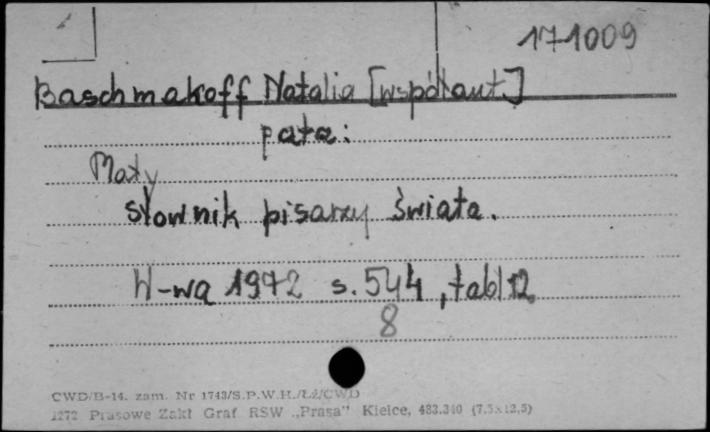 171009
Baschmakoff Natalia [współaut.]
patz:
Mały
słownik pisarzy świata.
W-wa 1972 s. 544, tabl 12
8
CWD/B-14. zam. Nr 1743/S.P.W.H./Łź/CWD
1272 Prasowe Zakł Graf RSW „Prasa” Kielce, 483.340 (7,5x12,5)